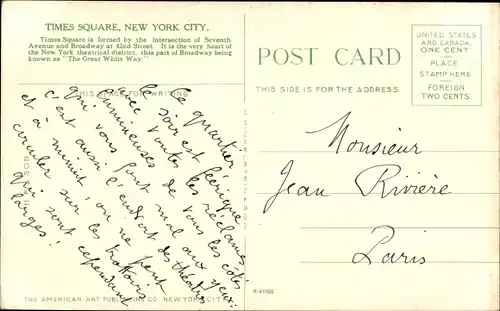 TIMES SQUARE, NEW YORK CITY.
Times Square is formed by the intersection of Seventh
Avenue and Broadway at 42nd Street. It is the very heart of
the New York theatrical district, this part of Broadway being
known as "The Great White Way."
THIS SPACE FOR WRITING
Ce quartier
le soir est féerique
avec toutes les réclames
lumineuses de tous les côtés
qui vous font mal aux yeux:
c'est aussi l'endroit des théâtres
et à minuit on ne peut
circuler sur les trottoirs
qui sont cependant
larges!
THE AMERICAN ART PUBLISHING CO. NEW YORK CITY
POST CARD
THIS SIDE IS FOR THE ADDRESS
UNITED STATES
AND CANADA
ONE CENT
PLACE
STAMP HERE
FOREIGN
TWO CENTS
Monsieur
Jean Rivière
Paris